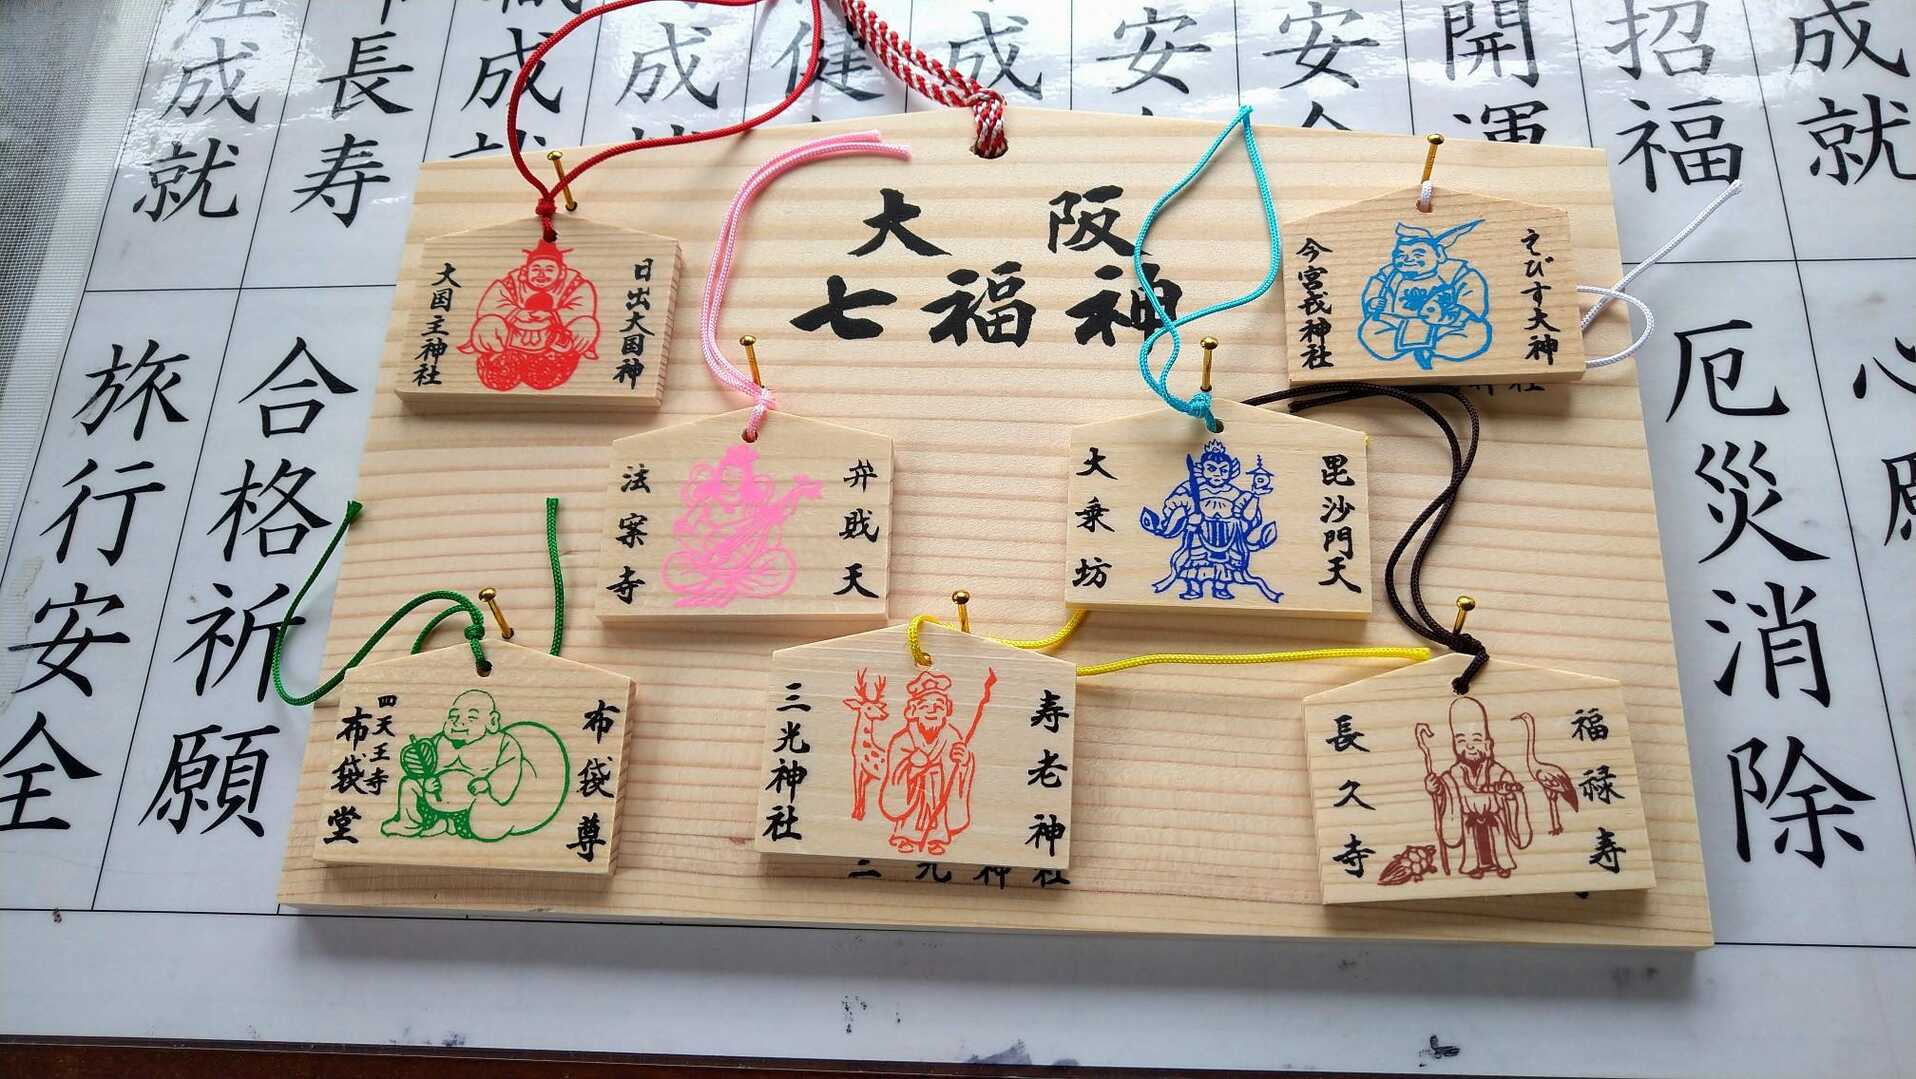 成就
長寿
成
成
健
成
安
安
開運
招福
成就
大阪
七福神
日出大国神
大国主神社
えびす大神
今宮戎神社
弁財天
法案寺
毘沙門天
大乗坊
布袋尊
四天王寺
布袋堂
寿老神
三光神社
三光神社
福禄寿
長久寺
神社
旅行安全
合格祈願
厄災消除
心願